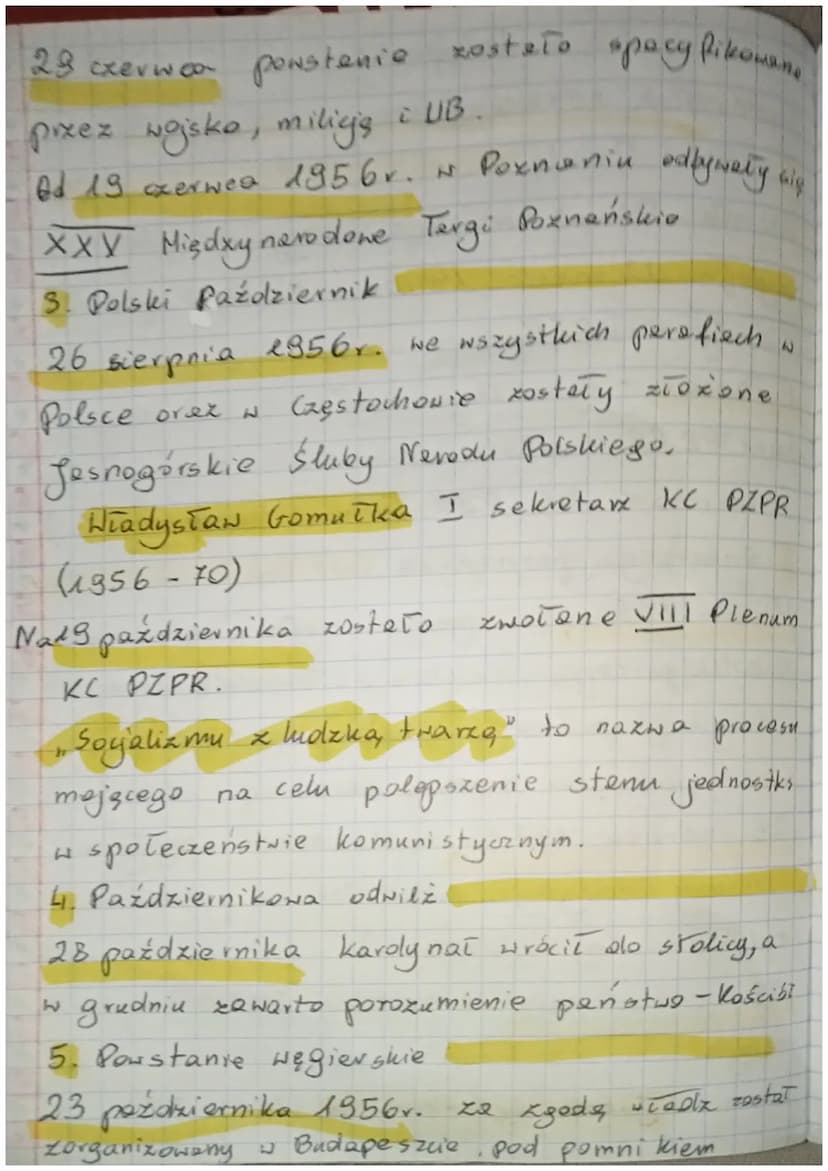 29 czerwca powstanie zostało spacyfikowane
przez wojsko, milicję i UB.
Od 19 czerwca 1956r. w Poznaniu odbywały się
XXV Międzynarodowe Targi Poznańskie
3. Polski Październik
26 sierpnia 1956r. we wszystkich parafiach w
Polsce oraz w Częstochowie zostały złożone
Jasnogórskie Śluby Narodu Polskiego.
Władysław Gomułka I sekretarz KC PZPR
(1956-70)
Na 19 października zostało zwołane VIII Plenum
KC PZPR.
„Socjalizmu z ludzką twarzą" to nazwa procesu
mającego na celu polepszenie stanu jednostki
w społeczeństwie komunistycznym.
4. Październikowa odwilż
28 października kardynał wrócił do stolicy, a
w grudniu zawarto porozumienie państwo-Kościół
5. Powstanie węgierskie
23 października 1956r. za zgodą władz został
zorganizowany w Budapeszcie, pod pomnikiem